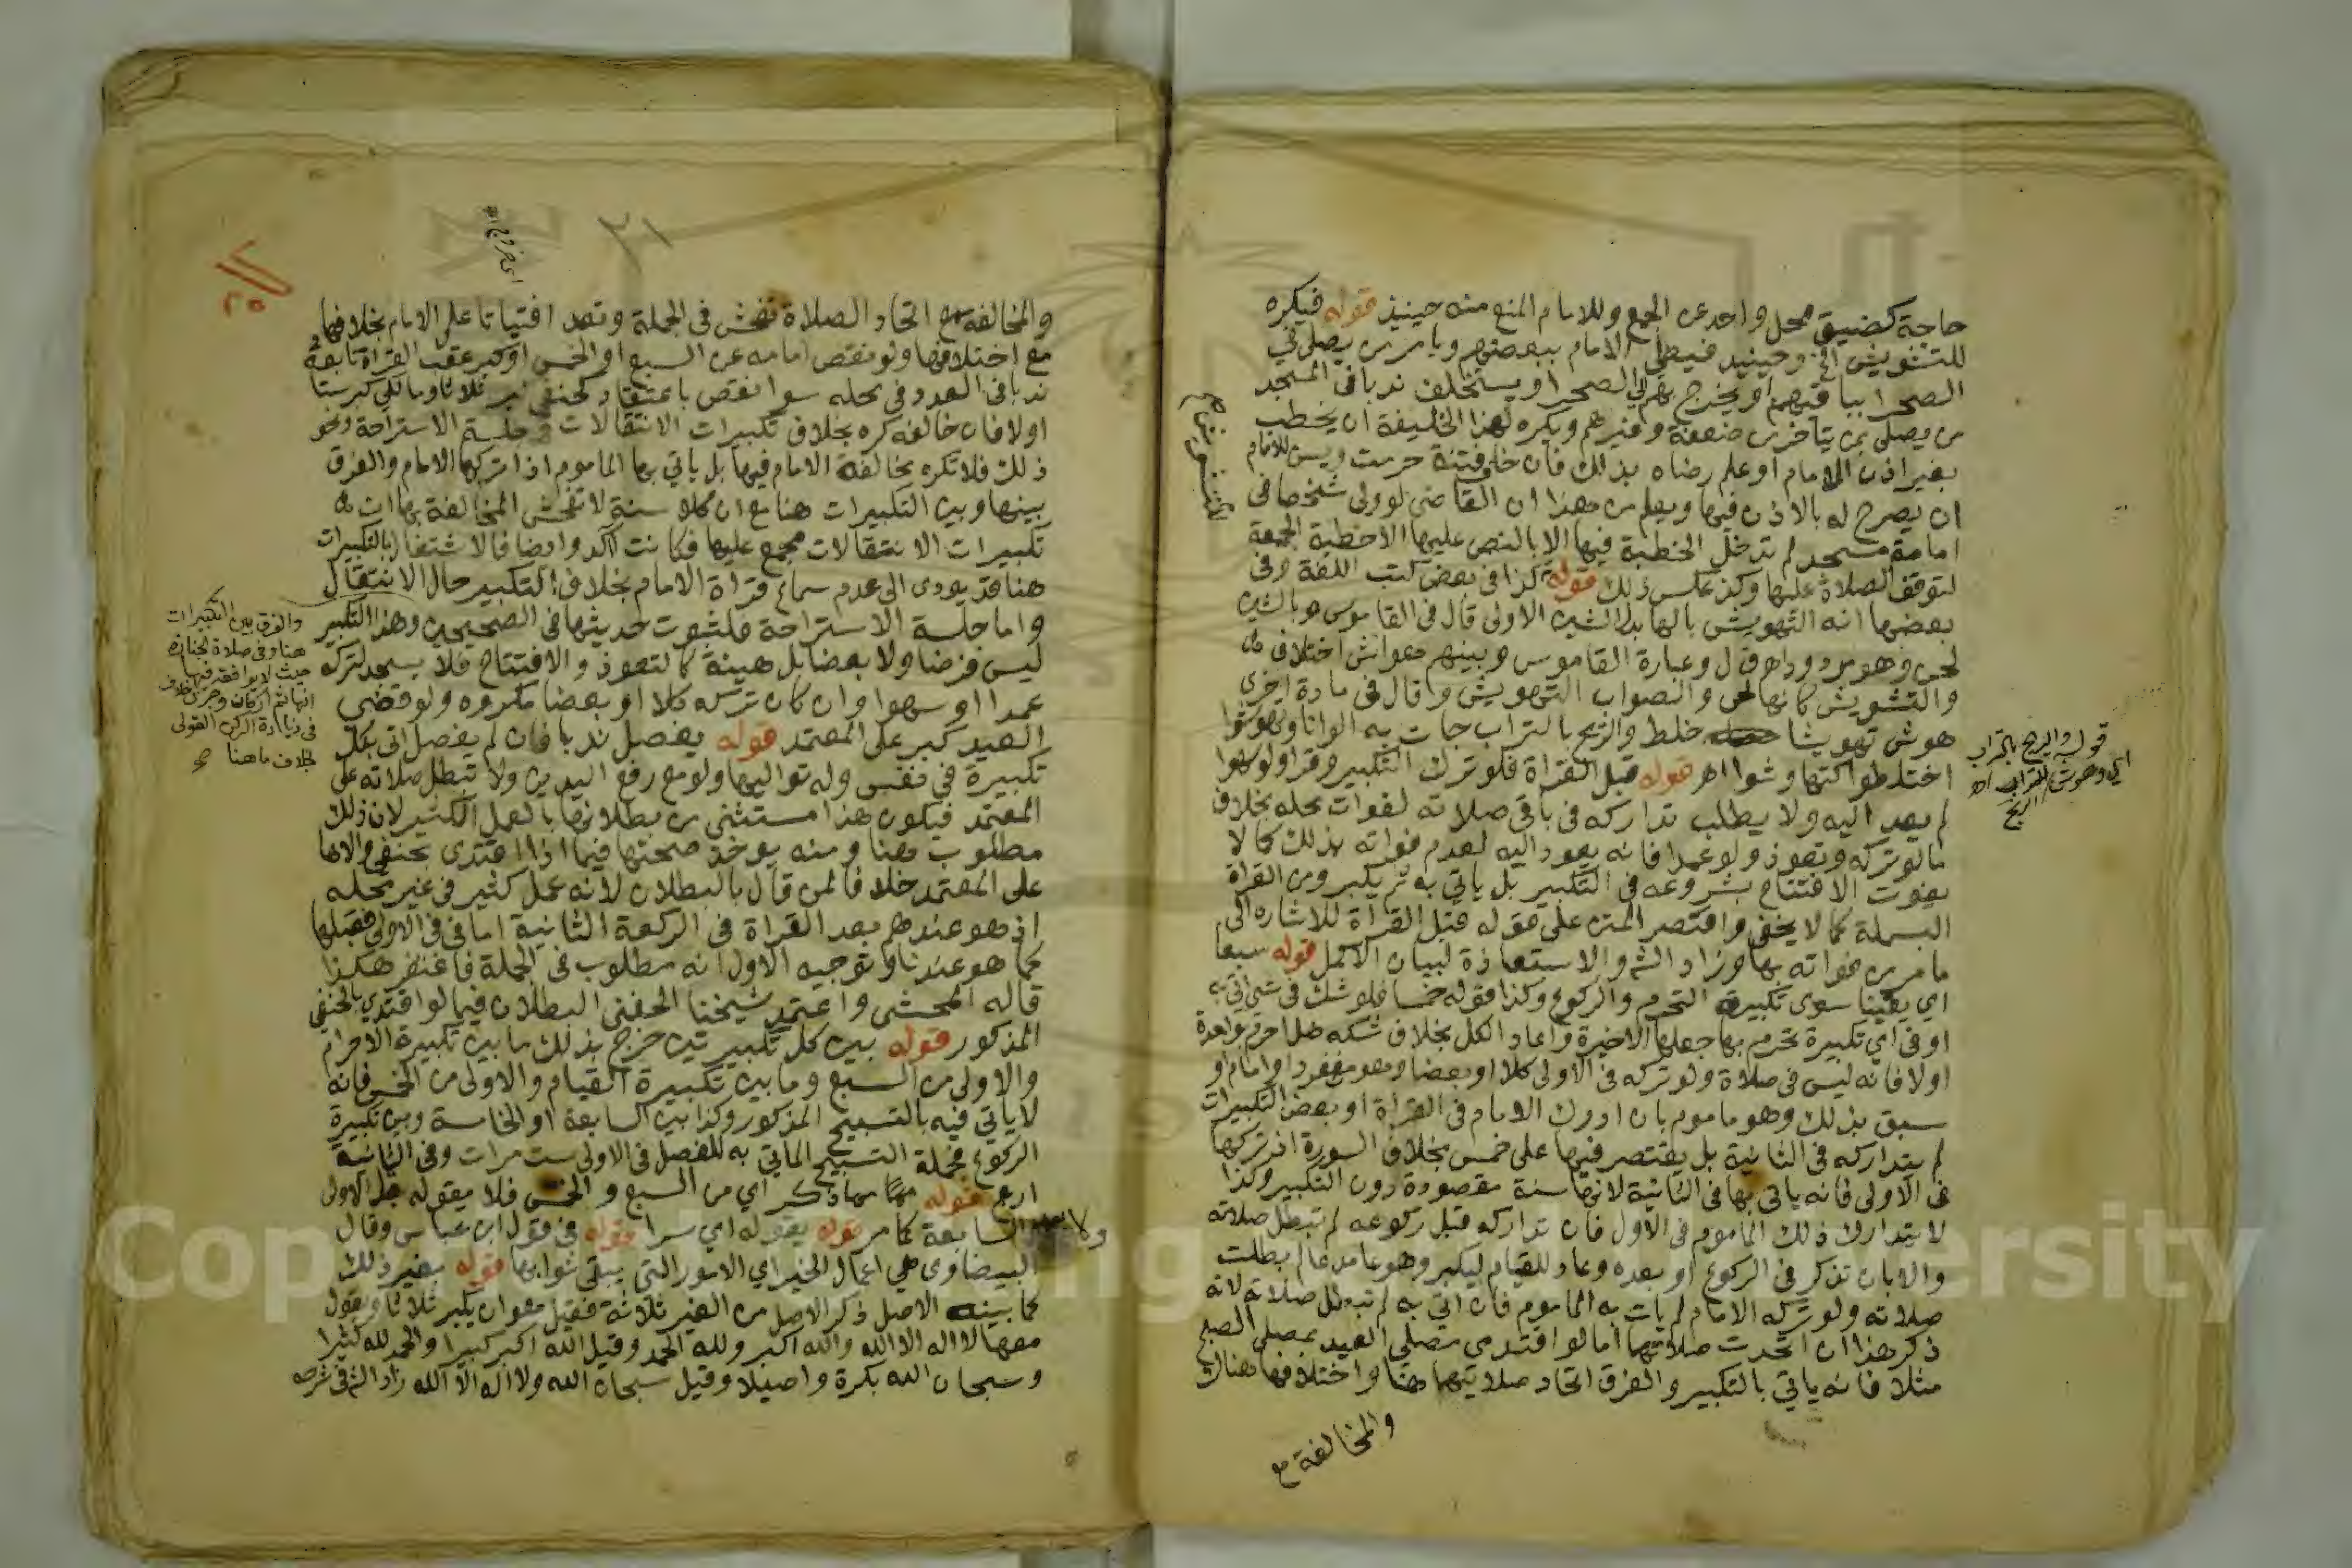 حاجة كضيق محل واحد عن الجمع وللامام المنع منه حينيذ قوله فيكره
للتشويش الخ وحينيد فيصلي الامام ببعضهم ويامر من يصلي في
الصحرا بباقيهم او يخرج بهم الي الصحرا ويستخلف ندبا في المسجد
من يصلي بمن يتاخر من ضعفة وغيرهم ويكره لهذا الخليفة ان يخطب
بغير اذن الامام او علم رضاه بذلك فان خاف فتنة حرمت ويسن للامام
ان يصرح له بالاذن فيها ويعلم من هذا ان القاضي لو ولى شخصا في
امامة مسجد لم تدخل الخطبة فيها الا بالنص عليها الا خطبة الجمعة
لتوقف الصلاة عليها وكذ عكس ذلك قوله كذا في بعض كتب اللغة وفي
بعضها انه التهويش بالها بدل الشين الاولى قال في القاموس هو بالشين
لحن وعبارة القاموس وبينهم هواش اختلاف
والتشويش كانها لحن والصواب التهويش وقال في مادة اخرى
هوش تهويشا خلط والريح بالتراب جات به الوانا وتهوشوا
اختلطوا كتهاوشوا اهـ قوله قبل القراة فلو ترك التكبير وقرا ولو سهوا
لم يعد اليه ولا يطلب تداركه في باقي صلاته لفوات محله بخلاف
ما لو تركه وتعوذ ولو عمدا فانه يعود اليه لعدم فواته بذلك كما لا
يفوت الافتتاح بشروعه في التكبير بل ياتي به ثم يكبر ومن القراة
البسملة كما لا يخفى واقتصر المتن على قوله قبل القراة للاشارة الى
ما مر من فواته بها وزاد الش والاستعاذة لبيان الاكمل قوله سبعا
اي يقينا سوى تكبيرة التحرم والركوع وكذا قوله خمسا فلو شك في شي اتي به
او في اي تكبيرة تحرم بها جعلها الاخيرة واعاد الكل بخلاف شكه هل احرم بواحدة
اولا فانه ليس في صلاة ولو تركه في الاولى كلا او بعضا وهو منفرد او امام او
سبق بذلك وهو ماموم بان ادرك الامام في القراة او بعض التكبيرات
لم يتداركه في الثانية بل يقتصر فيها على خمس بخلاف السورة اذ تركها
في الاولى فانه ياتي بها في الثانية لانها سنة مقصودة دون التكبير وكذا
لا يتدارك ذلك الماموم في الاول فان تداركه قبل ركوعه لم تبطل صلاته
والا بان تذكر في الركوع او بعده وعاد للقيام ليكبر وهو عامد عالم بطلت
صلاته ولو تركه الامام لم يات به الماموم فان اتي به لم تبطل صلاته لانه
ذكر هذا ان اتحدت صلاتهما اما لو اقتدى مصلي العيد بمصلي الصبح
مثلا فانه ياتي بالتكبير والفرق اتحاد صلاتيهما هنا واختلافها هناك
والمخالفة مع
قوله والريح بالتراب
اي وهوشت الريح
والمخالفة مع اتحاد الصلاة تفحش في الجملة وتعد افتياتا على الامام بخلافها
مع اختلافها ولو نقص امامه عن السبع او الخمس او كبر عقب القراة تابعه
ندبا في العدد وفي محله سوا نقص باعتقاد كحنفي كبر ثلاثا ومالكي كبر ستا
اولا فان خالفه كره بخلاف تكبيرات الانتقالات وجلسة الاستراحة ونحو
ذلك فلا تكره مخالفة الامام فيها بل ياتي بها الماموم اذا تركها الامام والفرق
بينها وبين التكبيرات هنا مع ان كلا سنة لا تفحش المخالفة بها ان
تكبيرات الانتقالات مجمع عليها فكانت آكد وايضا فالاشتغال بالتكبيرات
هنا قد يودى الى عدم سماع قراة الامام بخلاف التكبير حال الانتقال
واما جلسة الاستراحة فلثبوت حديثها في الصحيحين وهذا التكبير
ليس فرضا ولا بعضا بل هيئة كالتعوذ والافتتاح فلا يسجد لتركه
عمدا او سهوا وان كان تركه كلا او بعضا مكروه ولو قضى
العيد كبر على المعتمد قوله يفصل ندبا فان لم يفصل اتى بكل
تكبيرة في نفس وله تواليها ولو مع رفع اليدين ولا تبطل صلاته على
المعتمد فيكون هذا مستثنى من بطلانها بالعمل الكثير لان ذلك
مطلوب هنا ومنه يوخذ صحتها فيما اذا اقتدى بحنفي ووالاها
على المعتمد خلافا لمن قال بالبطلان لانه عمل كثير في غير محله
اذ هو عندهم بعد القراة في الركعة الثانية اما في الاولى فقبلها
كما هو عندنا وتوجيه الاول انه مطلوب في الجملة فاغتفر هكذا
قاله المحشي واعتمد شيخنا الحفني البطلان فيما لو اقتدي بالحنفي
المذكور قوله بين كل تكبيرتين خرج بذلك ما بين تكبيرة الاحرام
والاولى من السبع وما بين تكبيرة القيام والاولى من الخمس فانه
لا ياتي فيه بالتسبيح المذكور وكذا بين السابعة او الخامسة وبين تكبيرة
الركوع فجملة التسبيح الماتي به للفصل في الاولى ست مرات وفي الثانية
اربع قوله مما ذكر اي من السبع والخمس فلا يقوله قبل الاولى
ولا بعد السابعة كما مر قوله يقوله اي سرا قوله في قول ابن عباس وقال
البيضاوى هي اعمال الخير اي الامور التي يبقى ثوابها قوله بغير ذلك
كما بينه الاصل ذكر الاصل من الغير ثلاثة فقيل هو ان يكبر ثلاثا ويقول
معها لا اله الا الله والله اكبر ولله الحمد وقيل الله اكبر كبيرا والحمد لله كثيرا
وسبحان الله بكرة واصيلا وقيل سبحان الله ولا اله الا الله زاد الش في شرحه
والفرق بين التكبيرات
هنا وفي صلاة الجنازة
حيث لا يوافقه فيها
انها ثم اركان وجرى خلاف
في زيادة الركن القولى
بخلاف ما هنا